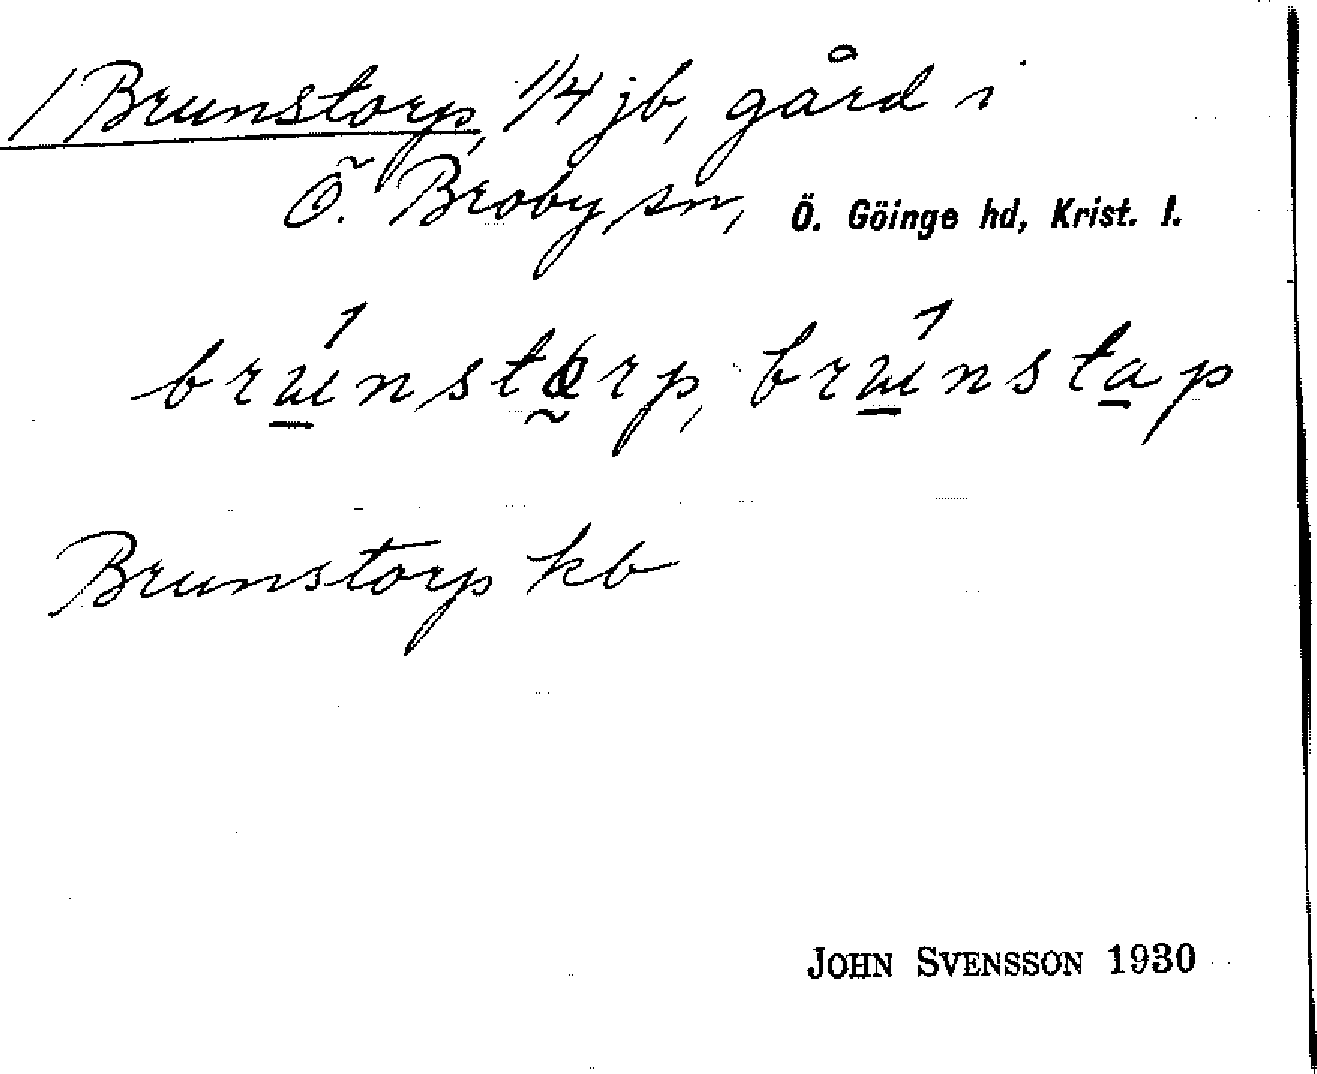 / Brunstorp, 1/4 jb, gård i
Ö. Broby sn, Ö. Göinge hd, Krist. l.
brúnstørp, brúnstap
Brunstorp kb
JOHN SVENSSON 1930